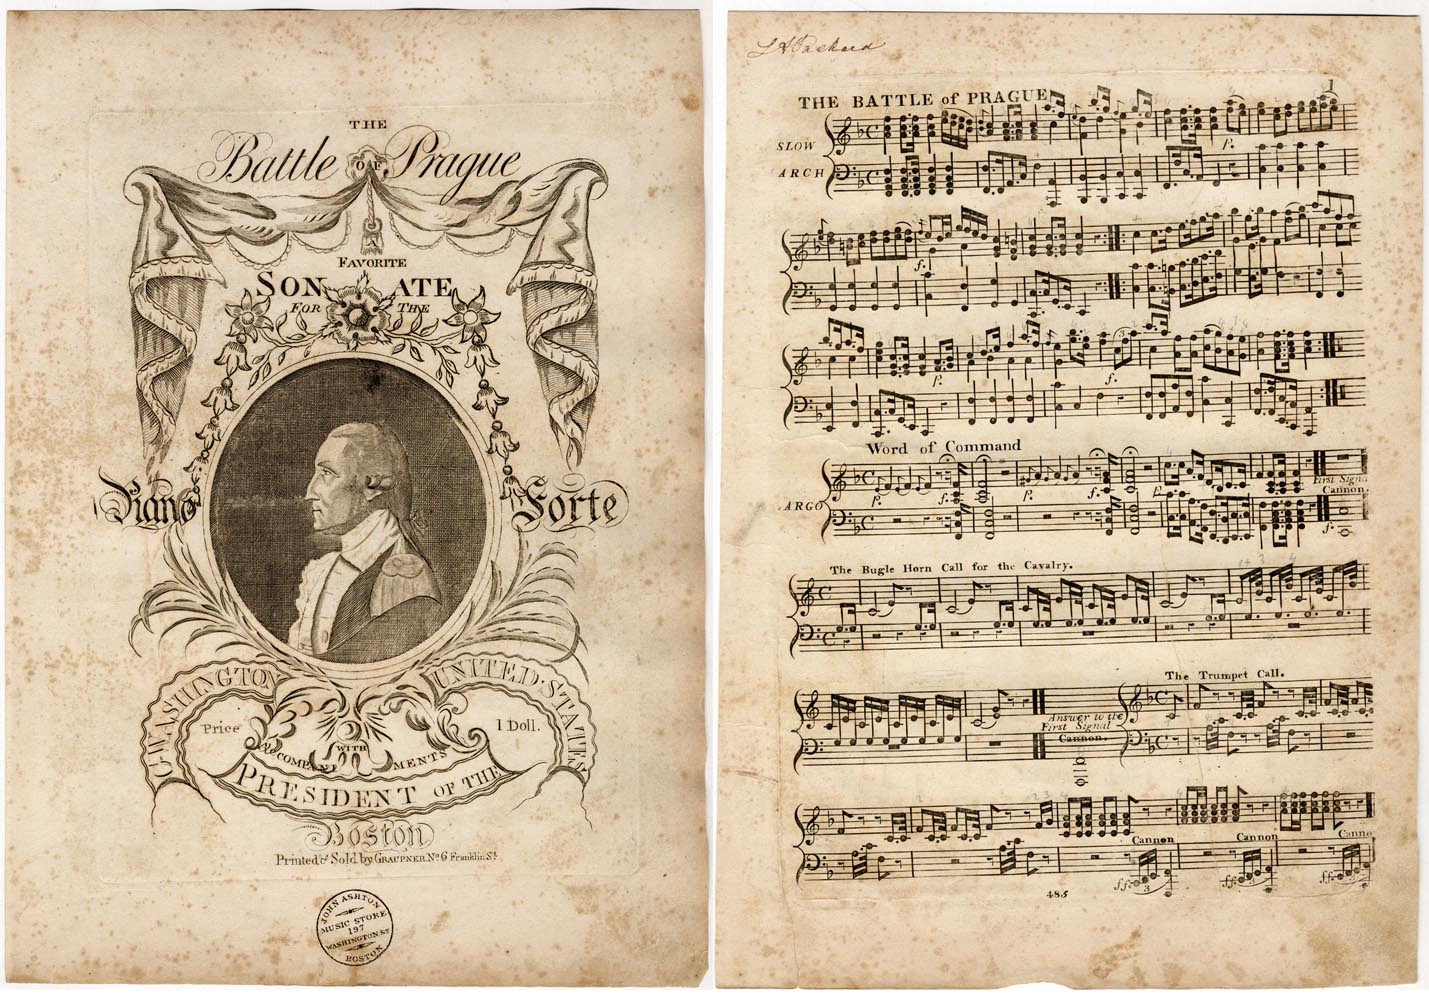 THE
Battle OF Prague
FAVORITE
SONATE
FOR THE
Piano Forte
G. WASHINGTON
UNITED STATES
Price 1 Doll.
WITH
ACCOMPANIMENTS
PRESIDENT OF THE
Boston
Printed & Sold by GRAUPNER No. 6 Franklin St.
JOHN ASHTON
MUSIC STORE
197
WASHINGTON ST
BOSTON
L A Packard
1
THE BATTLE of PRAGUE
SLOW
ARCH
p.
f.
p.
f.
Word of Command
ARGO
p. f. p. f. p.
First Signal
Cannon.
f.
The Bugle Horn Call for the Cavalry.
The Trumpet Call.
Answer to the
First Signal
Cannon.
Cannon Cannon Canno
ff. 3 ff. 3 ff. 3
485